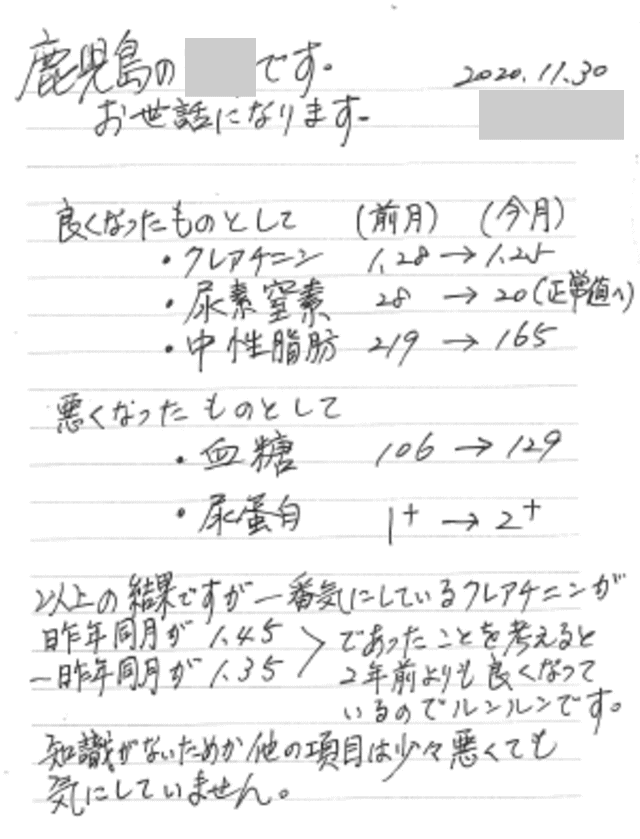 鹿児島の です。
2020.11.30
お世話になります。
良くなったものとして (前月) (今月)
・クレアチニン 1.28 → 1.25
・尿素窒素 28 → 20(正常値へ)
・中性脂肪 219 → 165
悪くなったものとして
・血糖 106 → 129
・尿蛋白 1+ → 2+
以上の結果ですが一番気にしているクレアチニンが
昨年同月が 1.45
一昨年同月が 1.35
であったことを考えると
2年前よりも良くなって
いるのでルンルンです。
知識がないためか他の項目は少々悪くても
気にしていません。